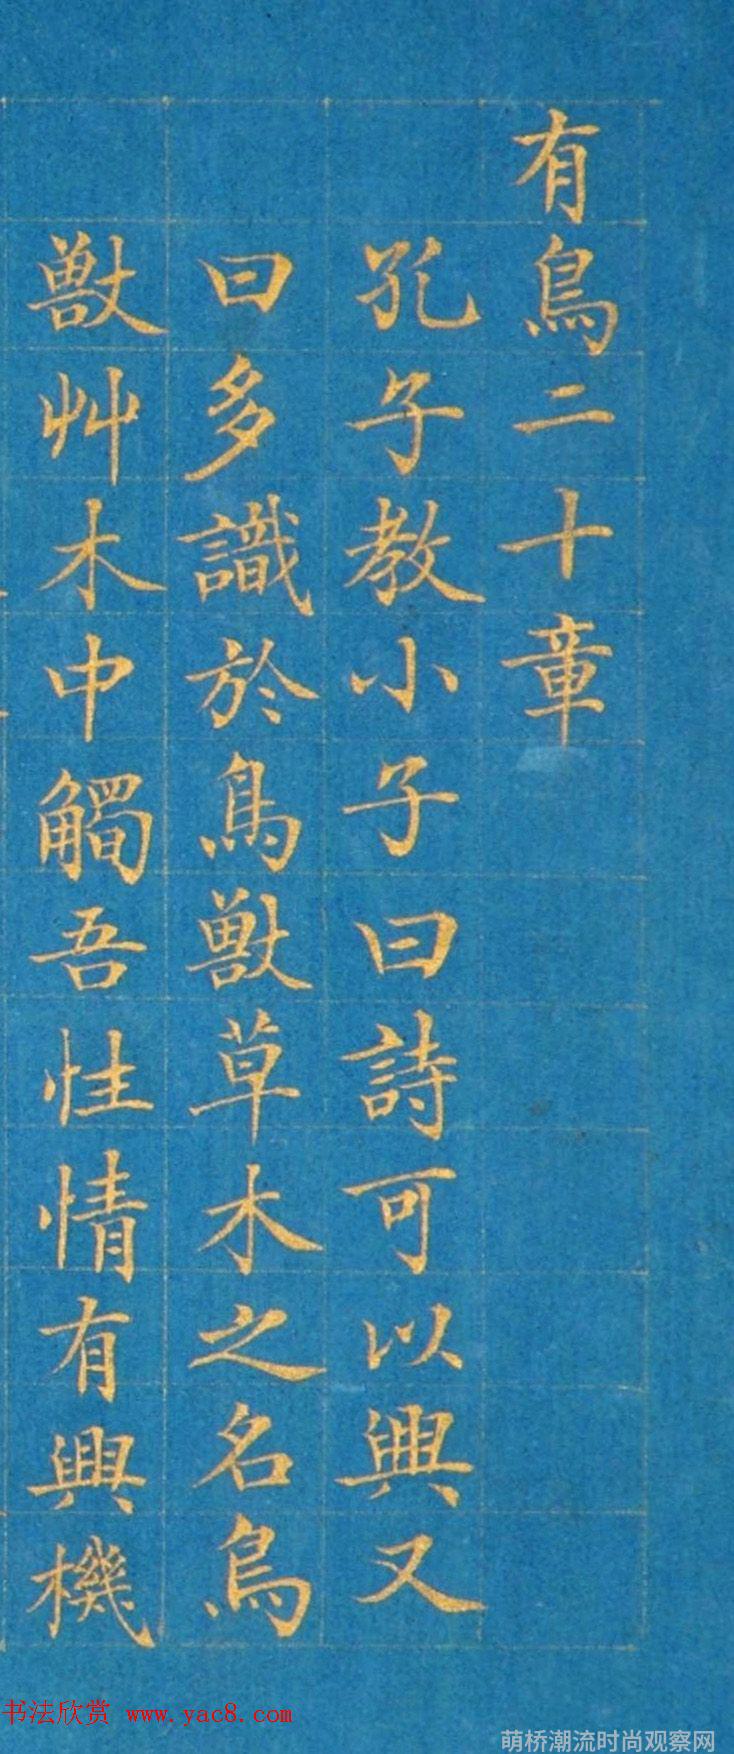 有鳥二十章
孔子教小子曰詩可以興又
曰多識於鳥獸草木之名鳥
獸艸木中觸吾性情有興機
书法欣赏 www.yac8.com
萌桥潮流时尚观察网